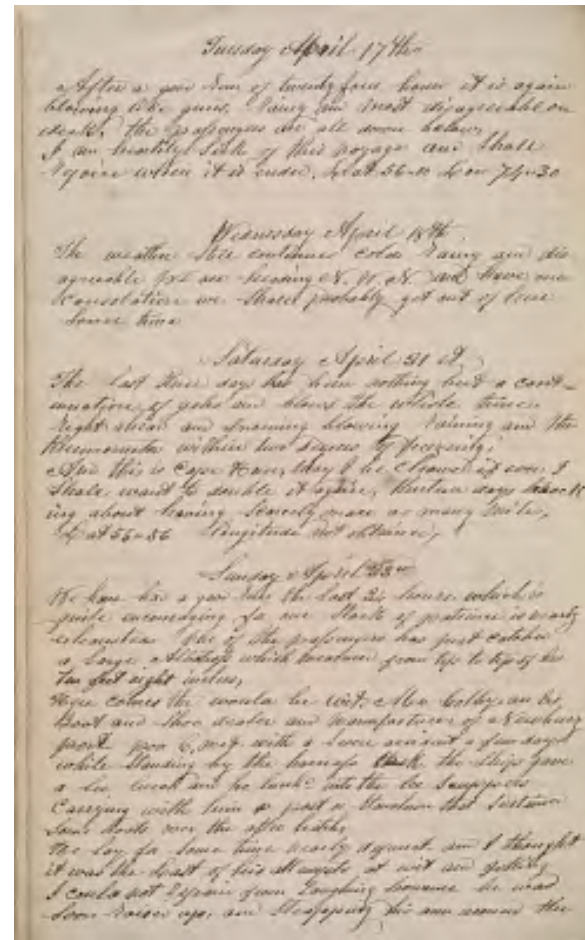 Tuesday April 17th
After a good run of twenty four hours it is again
blowing like guns. Rainy and most disagreeable on
deck, the passengers are all down below,
I am heartily sick of this voyage and shall
rejoice when it is ended. Lat 56-10 Lon 74-30
Wednesday April 18th
The weather still continues cold rainy and dis
agreeable We are heading N. N. and have one
consolation we shall probably get out of here
some time
Saturday April 21st
The last three days has been nothing but a cont-
inuation of gales and blows the whole time
right ahead and snowing blowing raining and the
thermometer within two degrees of freezing.
And this is Cape Horn, may I be if ever I
shall want to double it again, thirteen days knock
ing about having scarcely made as many miles,
Lat 56-56 Longitude not obtained,
Sunday April
We have had a good run the last 24 hours which is
quite encouraging for our stock of patience is nearly
exhausted One of the passengers has just catched
a large Albatross which measures from tip to tip of his
ten feet eight inches,
Here comes the would be wit. Mr Colby, an
Boot and Shoe dealer and manufacturer of Newbury
port met with a accident a few days
while standing by the harness the ships gave
a lee lurch and he into the lee scuppers
carrying with him a post or stanchion that
some over the after hatch,
He lay for some time nearly and I thought
it was the last of his attempts at wit and
I could not refrain from laughing however he was
soon raised up, and his arm around the